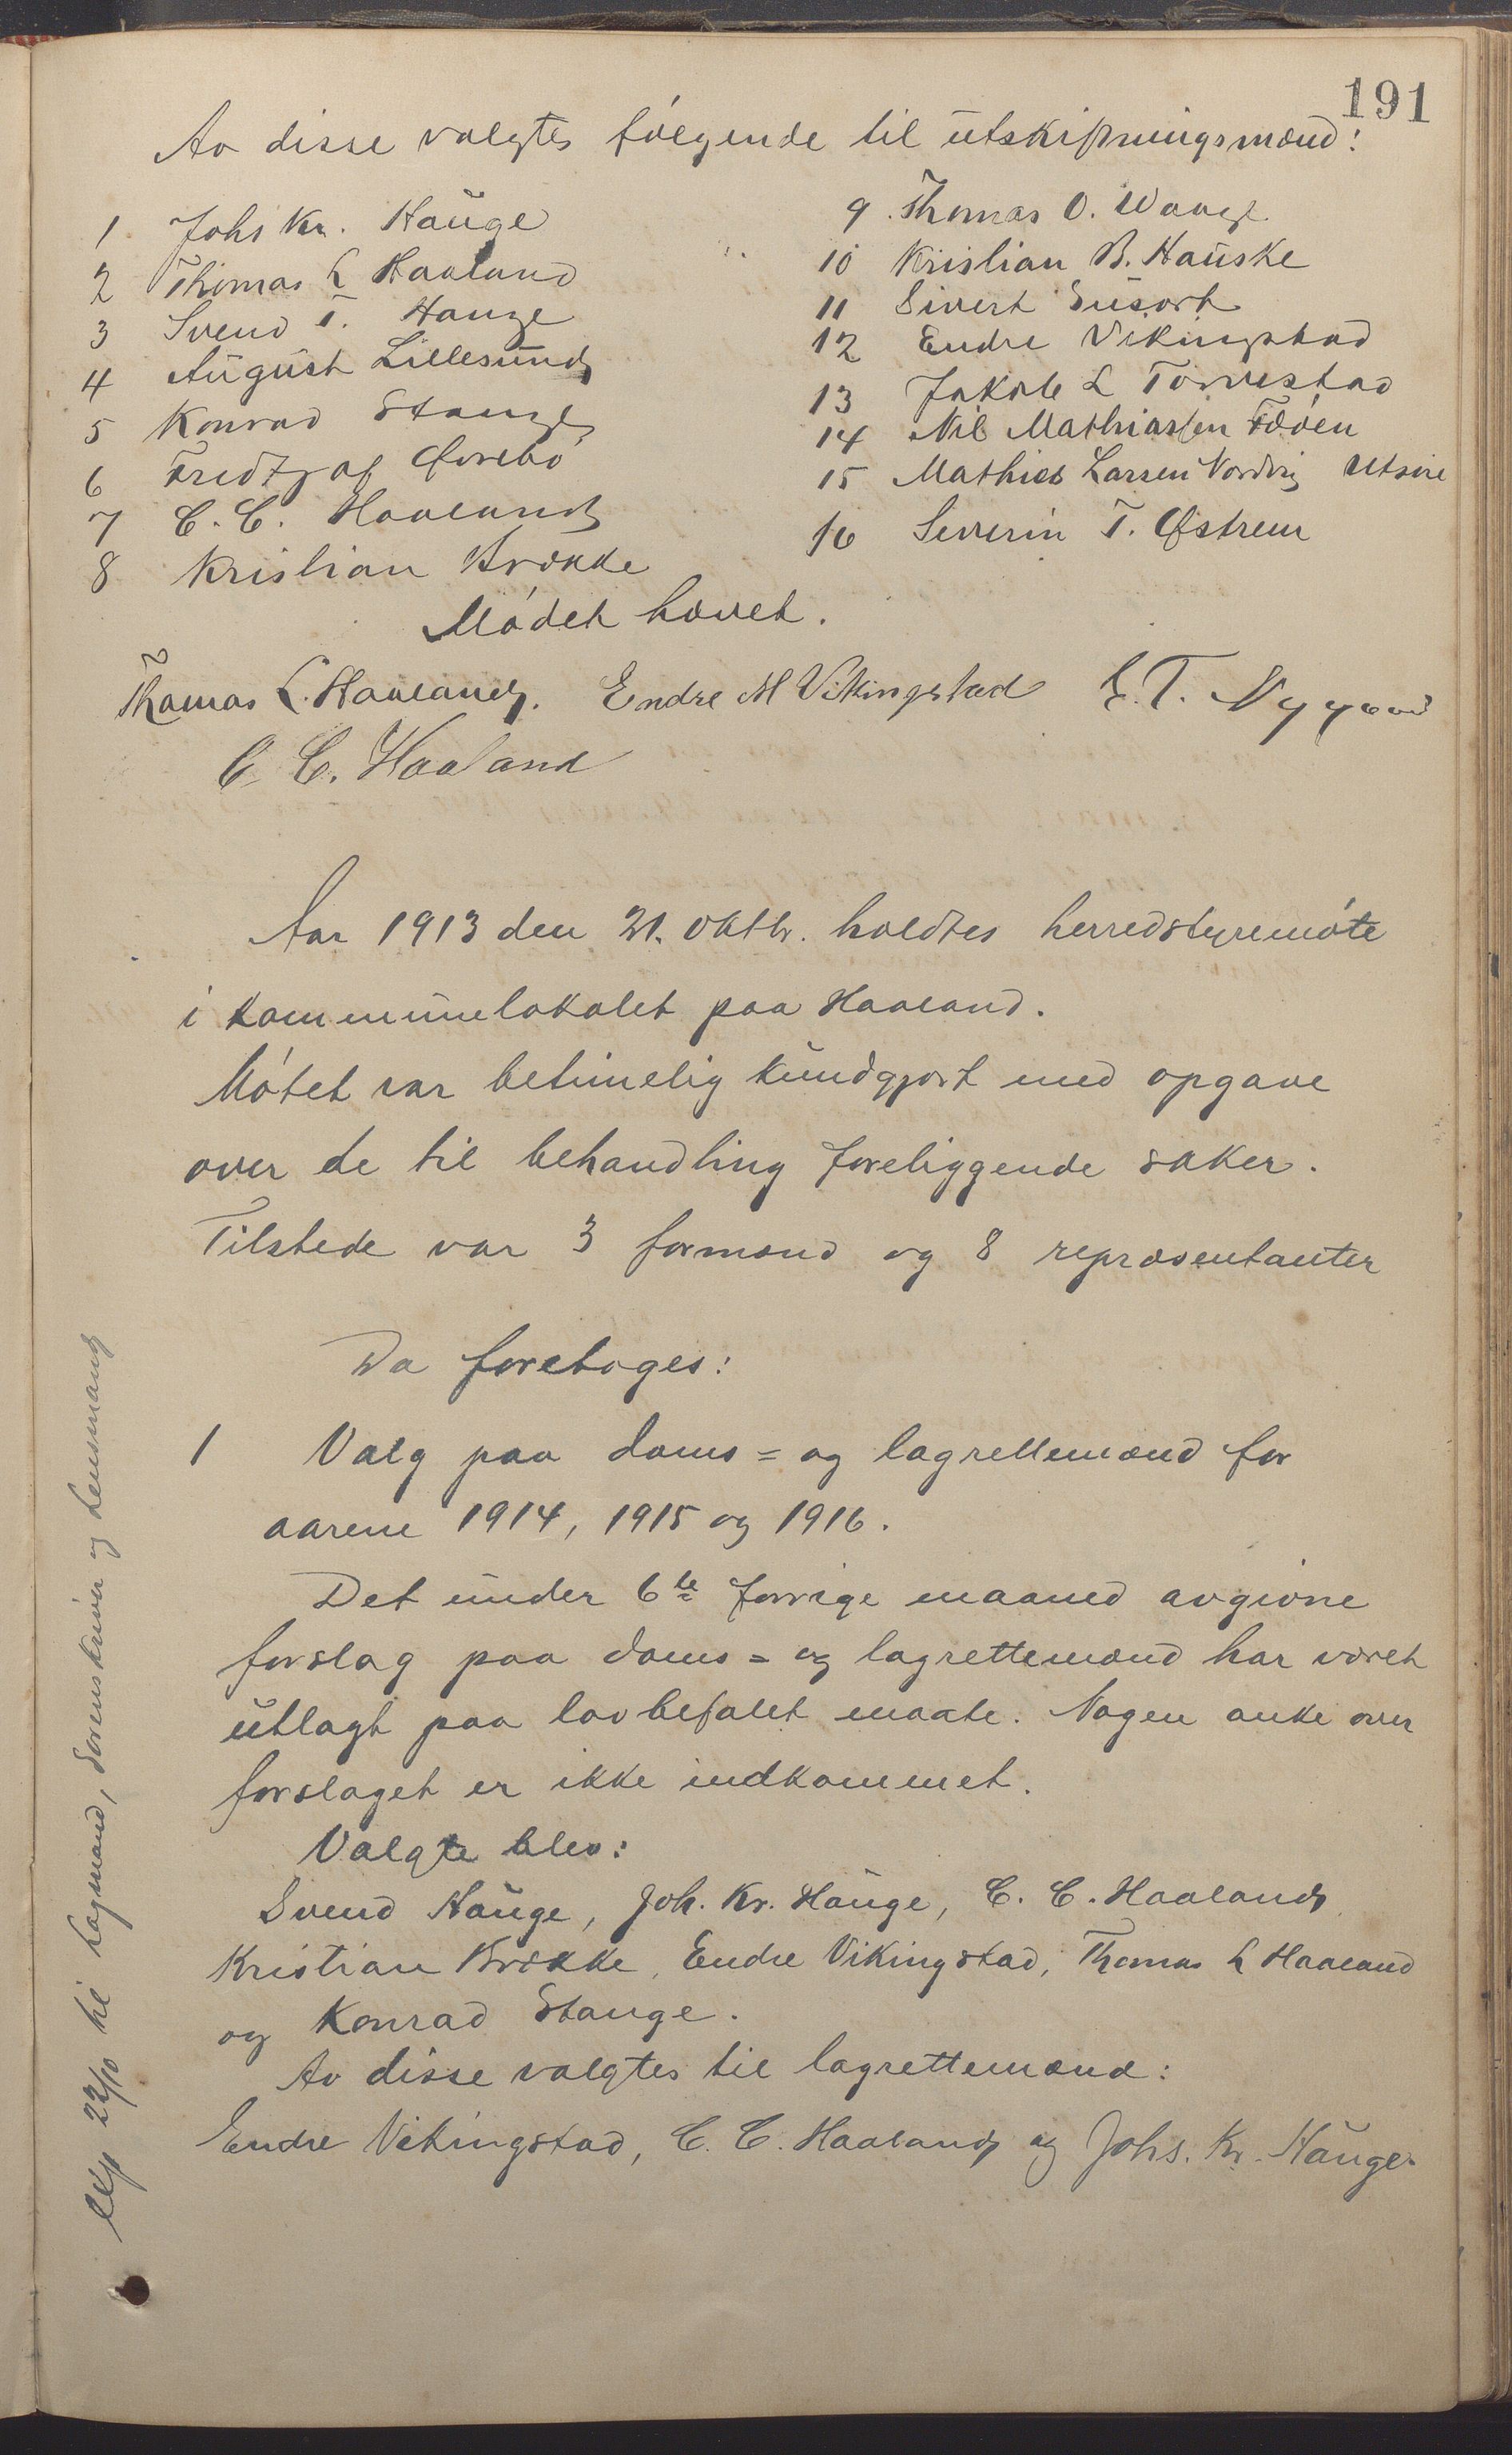 191
Av disse valgtes følgende til utskiftningsmænd:
1 Johs Kr. Hauge
2 Thomas L Haaland
3 Svend T. Hauge
4 August Lillesund
5 Konrad Stange
6 Fredtjof Ørebø
7 C. C. Haaland
8 Kristian Brække
9. Thomas O. Waage
10 Kristian B. Hauske
11 Sivert Susort
12 Endre Vikingstad
13 Jakob L Torvestad
14 Nils Mathiassen Fæøen
15 Mathias Larsen Nordvig Utsire
16 Severin T. Østrem
Mødet hævet.
Thomas L. Haaland. Endre M Vikingstad E. T. Nygaard
C. C. Haaland
Aar 1913 den 21. oktbr. holdtes herredstyremøte
i kommunelokalet paa Haaland.
Møtet var betimelig kundgjort med opgave
over de til behandling foreliggende saker.
Tilstede var 3 formænd og 8 repræsentanter
Da foretoges:
1 Valg paa doms= og lagrettemænd for
aarene 1914, 1915 og 1916.
Det under 6te forrige maaned avgivne
forslag paa doms= og lagrettemænd har været
utlagt paa lovbefalet maate. Nogen anke over
forslaget er ikke indkommet.
Valgte blev:
Svend Hauge, Joh. Kr. Hauge, C. C. Haaland,
Kristian Brække, Endre Vikingstad, Thomas L Haaland
og Konrad Stange.
Av disse valgtes til lagrettemænd:
Endre Vikingstad, C. C. Haaland og Johs. Kr. Hauge.
Exp 22/10 til Lagmand, Sorenskriver og Lensmand